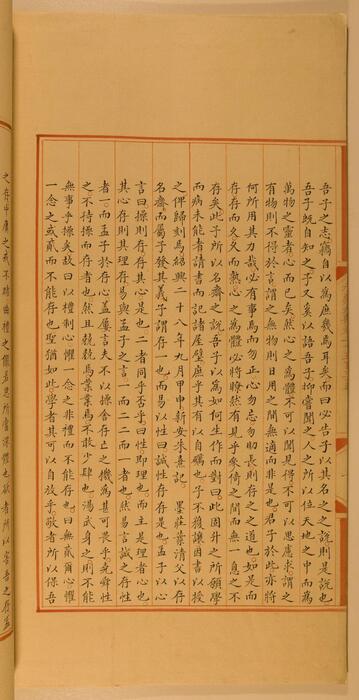 吾子之志竊自以為庶幾焉耳矣而曰必告子以其名之之說則是說也
吾子既自知之子又奚以語吾子抑嘗聞之人之所以位天地之中而為
萬物之靈者心而已矣然心之為體不可以聞見得不可以思慮求謂之
有物則不得於言謂之無物則日用之間無適而非是也君子於此亦將
何所用其力哉必有事焉而勿正心勿忘勿助長則存之之道也如是而
存存而久久而熟心之為體必將瞭然有見乎參倚之間而無一息之不
存矣此子所以名齋之說吾子以為如何生作而對曰此固升之所願學
而病未能者請書而記諸屋壁庶乎其有以自礪也子不獲讓因書以授
之俾歸刻焉紹興二十八年九月甲申新安朱熹記 墨莊葉清父以存
名齋而屬子發其義子謂存一也而易以性言曰誠性存存是也孟子以心
言曰操則存存其心是也二者同乎否乎曰性即理也而主是理者心也
其心存則其理存易與孟子之言一而二二而一者也然易言誠之存性
者一而孟子於存心蓋屢言夫不以操舍存亡之機為甚可畏乎堯舜性
之不待操而存者也然且兢兢焉業業焉不敢少肆也湯武身之則不能
無事乎操矣故曰以禮制心懼一念之非禮而不能存也曰無貳爾心懼
一念之或貳而不能存也聖猶如此學者其可以自放乎敬者所以保吾
之存中庸之戒不睹曲禮之儼若思所當深體也欲者所以害吾之存孟